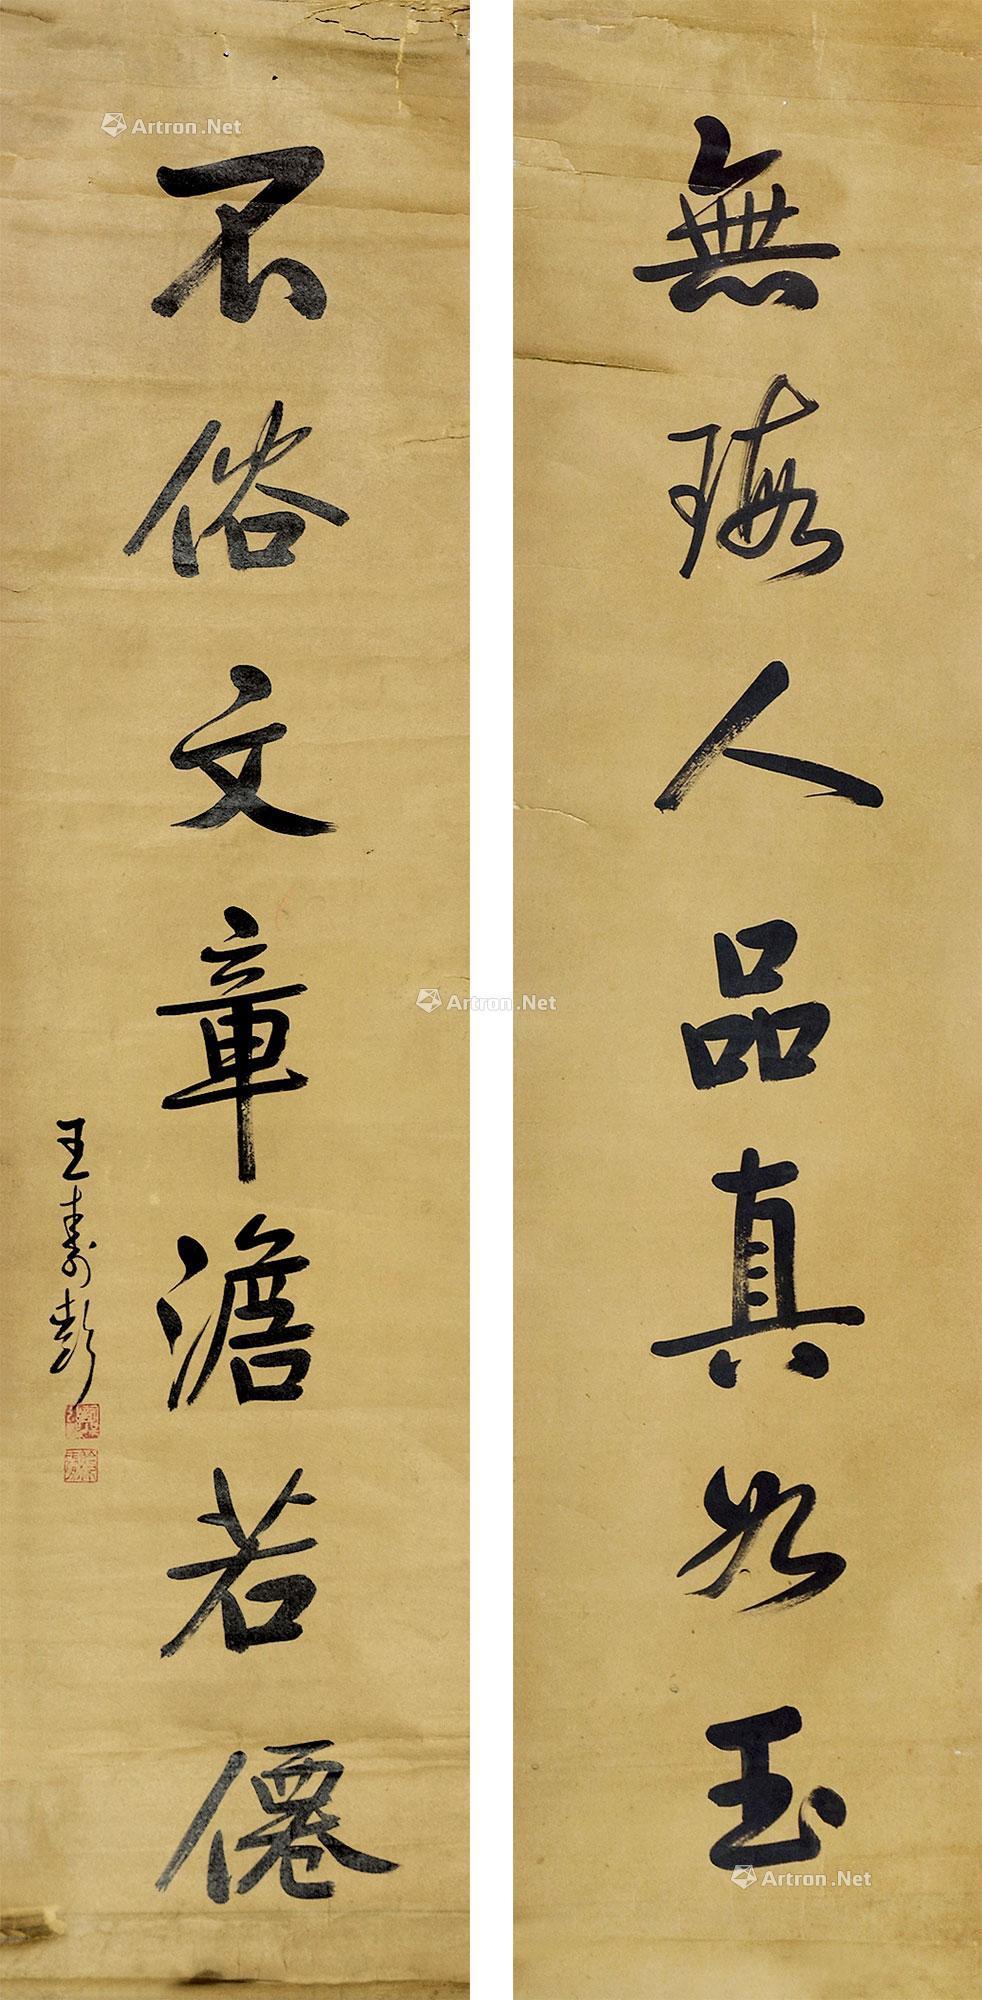 無瑕人品真如玉
不俗文章澹若僊
王壽彭
Artron.Net
Artron.Net
Artron.Net